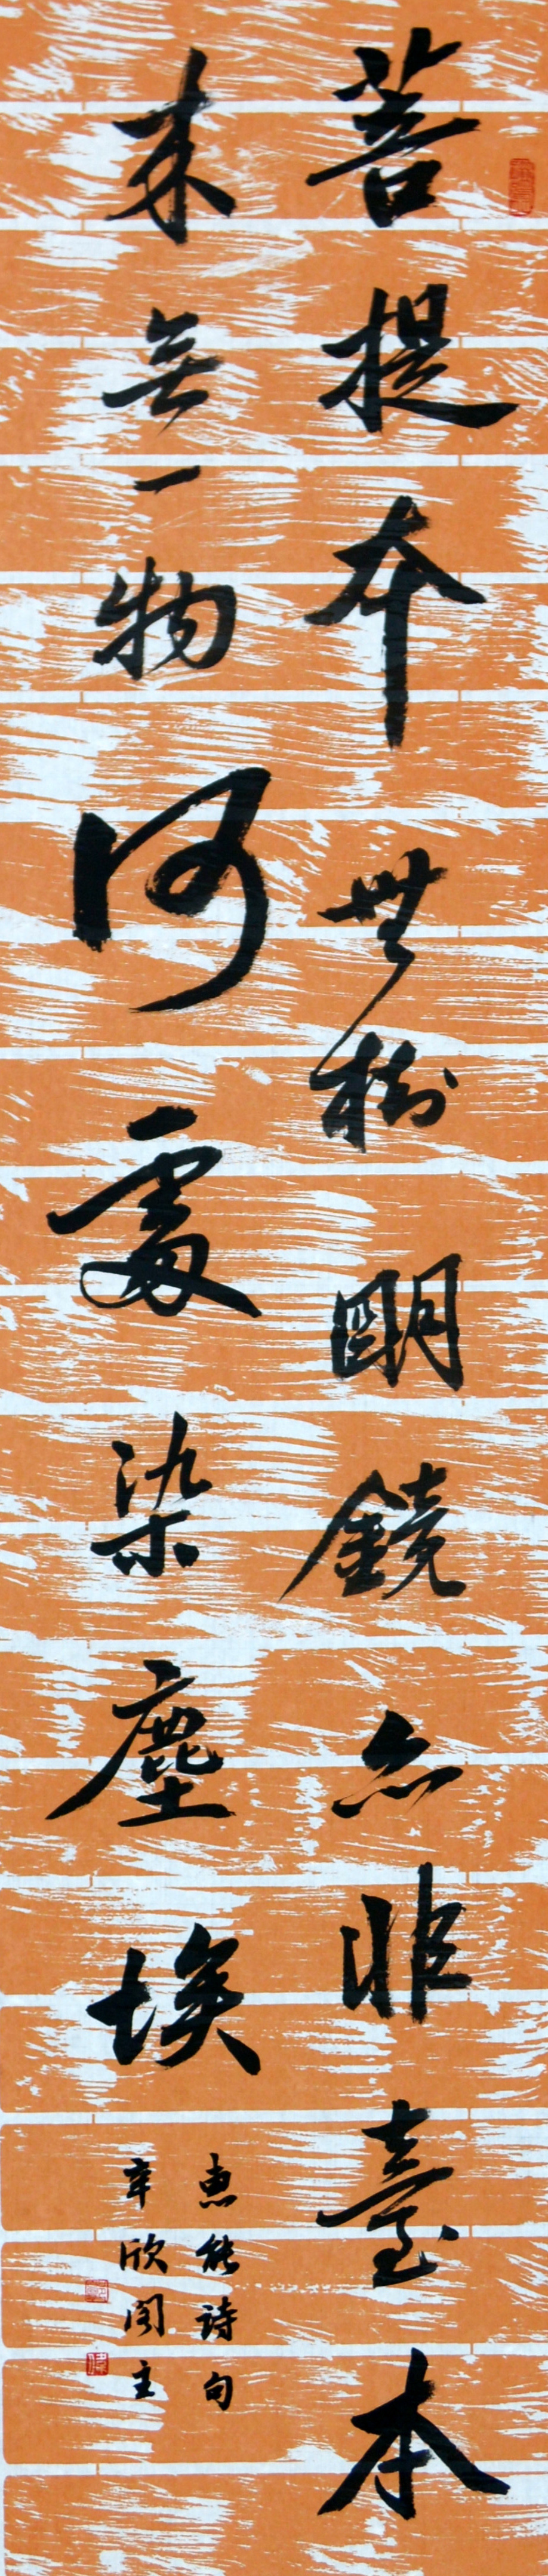 菩提本無樹明鏡亦非臺本
来無一物何處染塵埃
惠能詩句
辛欣閣主